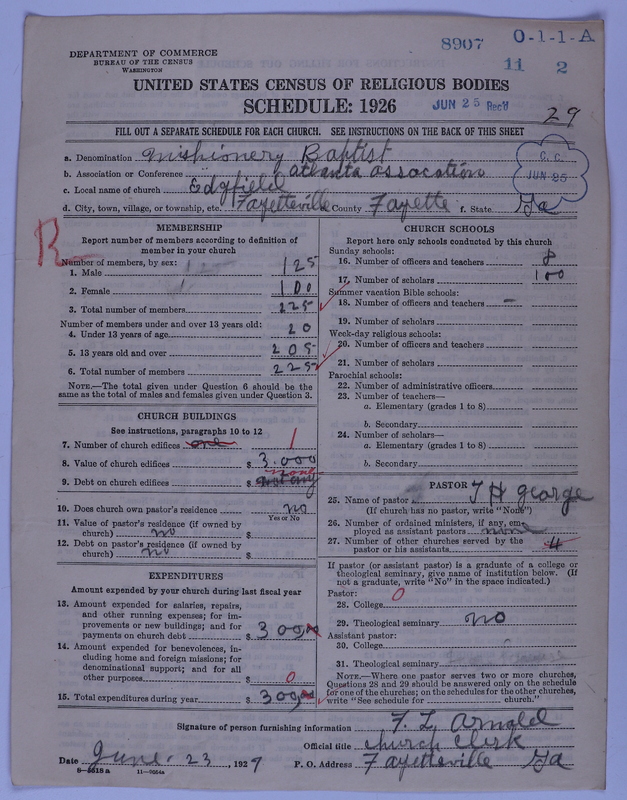 8907 0-1-1-A
11 2
DEPARTMENT OF COMMERCE
BUREAU OF THE CENSUS
WASHINGTON
UNITED STATES CENSUS OF RELIGIOUS BODIES
SCHEDULE: 1926
JUN 25 Rec'd
29
FILL OUT A SEPARATE SCHEDULE FOR EACH CHURCH. SEE INSTRUCTIONS ON THE BACK OF THIS SHEET
a. Denomination Mishionery Baptist
b. Association or Conference atlanta assocation
C. C.
JUN 25
c. Local name of church Edgfield
d. City, town, village, or township, etc. Fayetteville County Fayette f. State Ga
R
MEMBERSHIP
Report number of members according to definition of
member in your church
Number of members, by sex:
1. Male 125
2. Female 100
3. Total number of members 225
Number of members under and over 13 years old:
4. Under 13 years of age 20
5. 13 years old and over 205
6. Total number of members 225
NOTE.—The total given under Question 6 should be the
same as the total of males and females given under Question 3.
CHURCH BUILDINGS
See instructions, paragraphs 10 to 12
7. Number of church edifices one 1
8. Value of church edifices $ 3.000
9. Debt on church edifices $ none
10. Does church own pastor's residence no
Yes or No
11. Value of pastor's residence (if owned by
church) no $
12. Debt on pastor's residence (if owned by
church) no $
EXPENDITURES
Amount expended by your church during last fiscal year
13. Amount expended for salaries, repairs,
and other running expenses; for im-
provements or new buildings; and for
payments on church debt $ 300
14. Amount expended for benevolences, in-
cluding home and foreign missions; for
denominational support; and for all
other purposes $ 0
15. Total expenditures during year $ 300
CHURCH SCHOOLS
Report here only schools conducted by this church
Sunday schools:
16. Number of officers and teachers 8
17. Number of scholars 100
Summer vacation Bible schools:
18. Number of officers and teachers —
19. Number of scholars
Week-day religious schools:
20. Number of officers and teachers
21. Number of scholars
Parochial schools:
22. Number of administrative officers
23. Number of teachers—
a. Elementary (grades 1 to 8)
b. Secondary
24. Number of scholars—
a. Elementary (grades 1 to 8)
b. Secondary
PASTOR
25. Name of pastor J H george
(If church has no pastor, write "None")
26. Number of ordained ministers, if any, em-
ployed as assistant pastors none
27. Number of other churches served by the
pastor or his assistants 4
If pastor (or assistant pastor) is a graduate of a college or
theological seminary, give name of institution below. (If
not a graduate, write "No" in the space indicated.)
Pastor: 0
28. College
29. Theological seminary no
Assistant pastor:
30. College
31. Theological seminary
NOTE.—Where one pastor serves two or more churches,
Questions 28 and 29 should be answered only on the schedule
for one of the churches; on the schedules for the other churches,
write "See schedule for church."
Signature of person furnishing information T. L. Arnold
Official title church clerk
Date June 23, 1927 P. O. Address Fayetteville Ga
8—5518 a 11—8054a